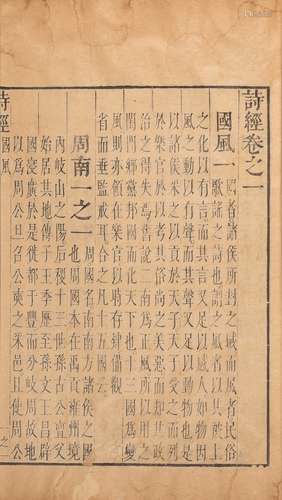 詩經卷之一
國風一 國者諸侯所封之域而風者民俗
歌謠之詩也謂之風者以其被上
之化以有言而其言又足以感人如物因
風之動以有聲而其聲又足以動物也是
以諸侯采之以貢於天子天子受之而列
於樂官於以考其俗尚之美惡而知其政
治之得失焉舊說二南為正風所以用之
閨門鄉黨邦國而化天下也十三國為變
風則亦領在樂官以時存肄備觀
省而垂監戒耳合之凡十五國云
周南一之一 周國名南南方諸侯之國
也周國本在禹貢雍州境
內岐山之陽后稷十三世孫古公亶父
始居其地傳子王季歷至孫文王昌辟
國寖廣於是徙都于豐而分岐周故地
以為周公旦召公奭之采邑且使周公
詩經
國風